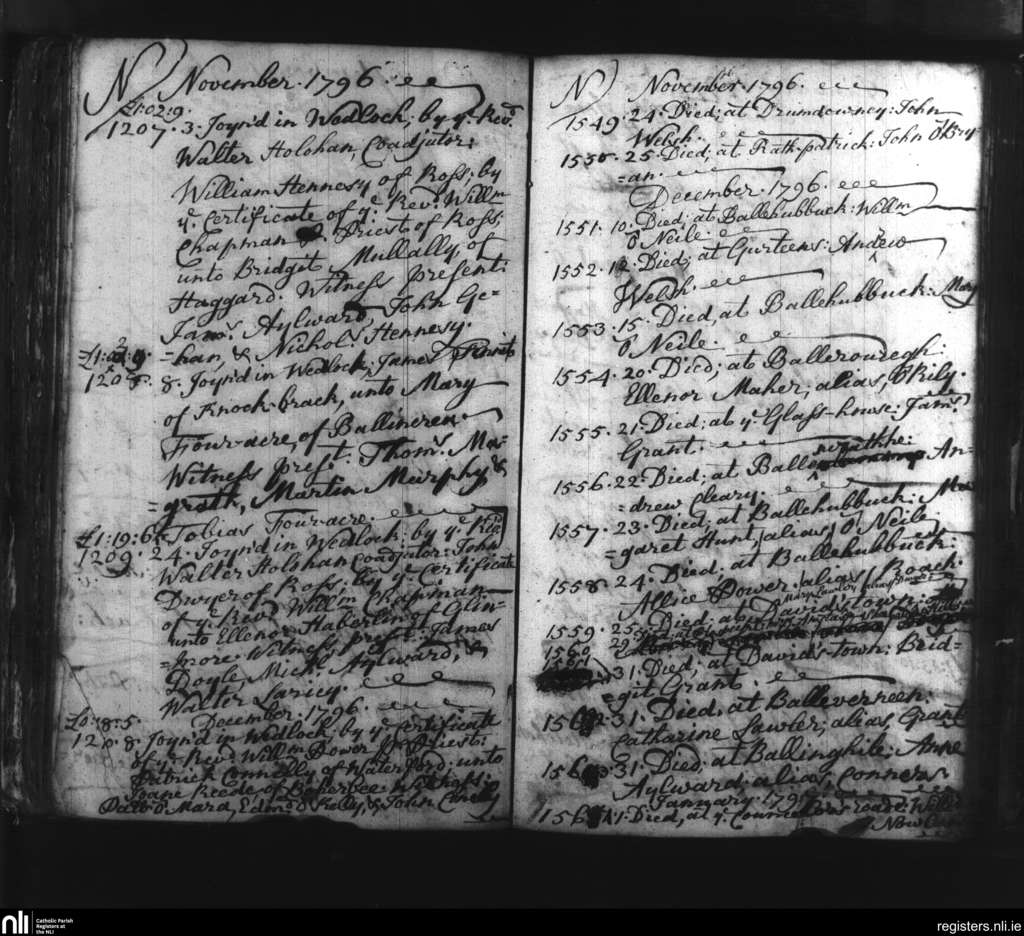 N November. 1796.
£1:02:9.
1207. 3: Joyn'd in Wedlock; by yͤ. Revᵈ.
Walter Holohan, Coadjutor:
William Hennesy of Ross: by
yͤ. Certificate of yͤ. Revᵈ. Willm
Chapman Priest of Ross:
unto Bridget Mullally of
Haggard. Witness present:
Jamˢ. Aylward, John Ge=
=han, & Nicholˢ. Hennesy.
8. Joyn'd in Wedlock; James
of Knock-brack, unto Mary
Four-acre, of Ballincrea.
Witness prest. Thomˢ. Ma=
=grath, Martin Murphy &
Tobias Four-acre.
£1:19:6.
1209. 24. Joyn'd in Wedlock; by yͤ. Revᵈ
Walter Holohan Coadjutor: John
Dwyer of Ross: by yͤ. Certificate
of yͤ. Revᵈ. Willm Chapman
unto Ellenor Haberlin of Glin=
=more: Witness prest: James
Doyle, Michˡ. Aylward, &
Walter
£0:18:5.
December. 1796.
8. Joyn'd in Wedlock; by yͤ. Certificate
of yͤ. Revᵈ. Willm Power Priest:
Patrick Connelly of Waterford: unto
Joane
Edmᵈ. Kelly, & John
N November. 1796.
1549. 24. Died; at Drumdowney: John
Welsh.
1550. 25. Died; at Rath-patrick: John O'Bry=
=an.
December. 1796.
1551. 10. Died; at Ballehubbuck: Willm
O Neile.
1552. 12. Died; at Gurteens: Andrew
Welsh.
1553. 15. Died, at Ballehubbuck: Mary
O Neile.
1554. 20. Died; at Ballerouragh:
Ellenor Maher; alias, O Kily.
1555. 21. Died; at yͤ. Glass-house: Jamˢ.
Grant.
1556. 22. Died; at Balle An=
=drew Cleary.
1557. 23. Died; at Ballehubbuck: Ma
=garet Hunt, alias, O Neile.
1558. 24. Died; at Ballehubbuck:
Allice Power, alias, Roach.
1559. 25. Died; at Davidstown:
1560
31. Died; at Davids-town: Brid=
=git Grant.
31. Died, at Balleverreen:
Catharine Lawler; alias, Grant
31. Died; at Ballinghile: Anne
Aylward; alias, Conners.
January. 179
1: Died, at yͤ.
nli
Catholic Parish
Registers at
the NLI
registers.nli.ie